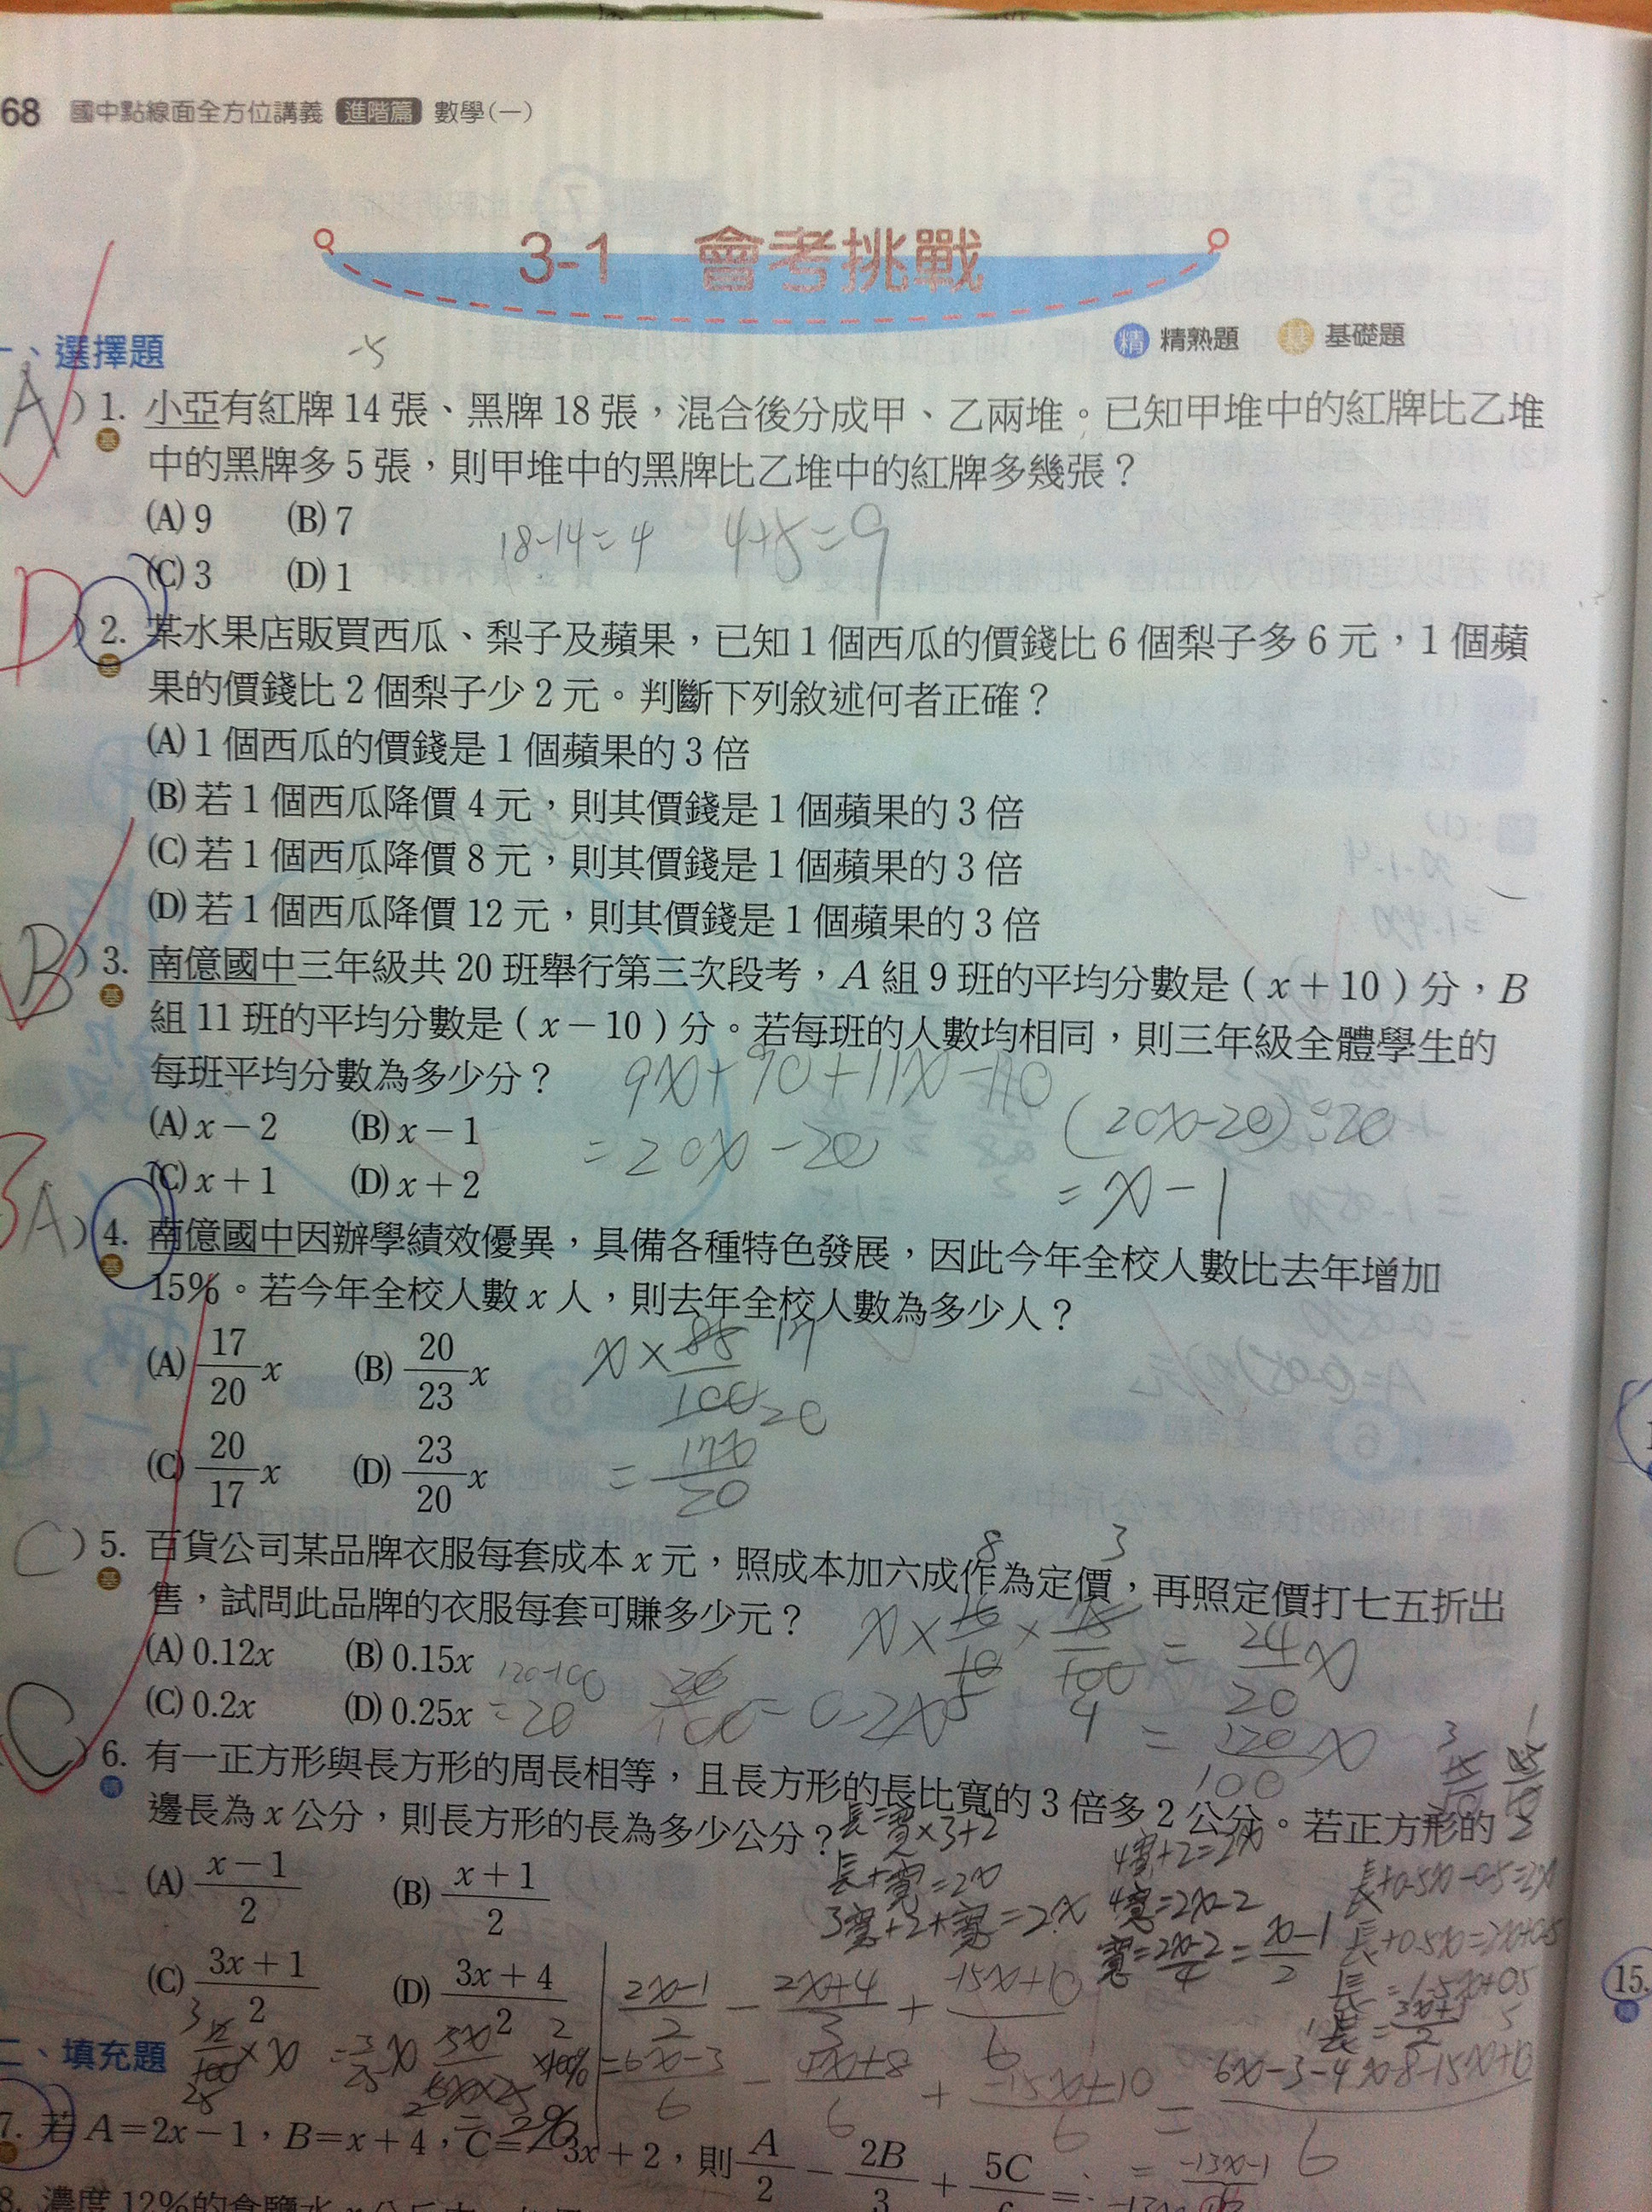 68 國中點線面全方位講義 進階篇 數學(一)
3-1 會考挑戰
精 精熟題 基 基礎題
一、選擇題
-5
A )1. 小亞有紅牌 14 張、黑牌 18 張，混合後分成甲、乙兩堆。已知甲堆中的紅牌比乙堆
基 中的黑牌多 5 張，則甲堆中的黑牌比乙堆中的紅牌多幾張？
(A) 9 (B) 7
18-14=4 4+5=9
(C) 3 (D) 1
D )2. 某水果店販買西瓜、梨子及蘋果，已知 1 個西瓜的價錢比 6 個梨子多 6 元，1 個蘋
基 果的價錢比 2 個梨子少 2 元。判斷下列敘述何者正確？
(A) 1 個西瓜的價錢是 1 個蘋果的 3 倍
(B) 若 1 個西瓜降價 4 元，則其價錢是 1 個蘋果的 3 倍
(C) 若 1 個西瓜降價 8 元，則其價錢是 1 個蘋果的 3 倍
(D) 若 1 個西瓜降價 12 元，則其價錢是 1 個蘋果的 3 倍
B )3. 南億國中三年級共 20 班舉行第三次段考，A 組 9 班的平均分數是（x＋10）分，B
基 組 11 班的平均分數是（x－10）分。若每班的人數均相同，則三年級全體學生的
每班平均分數為多少分？ 9x+90+11x-110
(A) x－2 (B) x－1 =20x-20 (20x-20)÷20
(C) x＋1 (D) x＋2 =x-1
B A )4. 南億國中因辦學績效優異，具備各種特色發展，因此今年全校人數比去年增加
基 15%。若今年全校人數 x 人，則去年全校人數為多少人？
(A) 17/20 x (B) 20/23 x x × 85/100 17 20
(C) 20/17 x (D) 23/20 x = 17x/20
C )5. 百貨公司某品牌衣服每套成本 x 元，照成本加六成作為定價，再照定價打七五折出
基 售，試問此品牌的衣服每套可賺多少元？
8 3
x × 16/10 × 75/100 = 24/20 x
5 4
(A) 0.12x (B) 0.15x 120-100
(C) 0.2x (D) 0.25x =20 20/100=0.2x = 120/100 x
C )6. 有一正方形與長方形的周長相等，且長方形的長比寬的 3 倍多 2 公分。若正方形的
精 邊長為 x 公分，則長方形的長為多少公分？
長=寬×3+2
長+寬=2x
3寬+2+寬=2x
4寬+2=2x
4寬=2x-2
寬=2x-2/4=x-1/2
長+0.5x-0.5=2x
長+0.5x=2x+0.5
長=1.5x+0.5
長=3x+1/2
(A) x－1/2 (B) x＋1/2
(C) 3x＋1/2 (D) 3x＋4/2
2x-1/2 - 2x+4/3 + -15x+10/6
二、填充題
=6x-3/6 - 4x+8/6 + -15x+10/6 = 6x-3-4x-8-15x+10/6
7. 若 A＝2x－1，B＝x＋4，C＝－3x＋2，則 A/2 － 2B/3 ＋ 5C/6 ＝
= -13x-1/6
15.